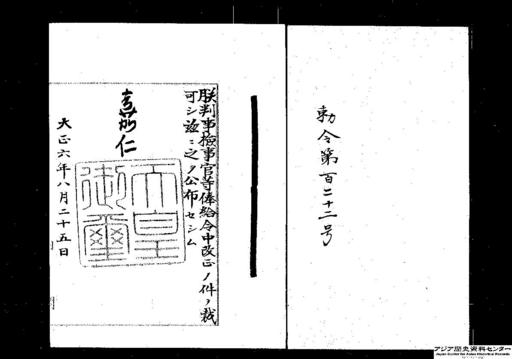 勅令第百二十二号
朕判事検事官等俸給令中改正ノ件ヲ裁
可シ茲ニ之ヲ公布セシム
嘉仁
天皇
御璽
大正六年八月二十五日
アジア歴史資料センター
Japan Center for Asian Historical Records